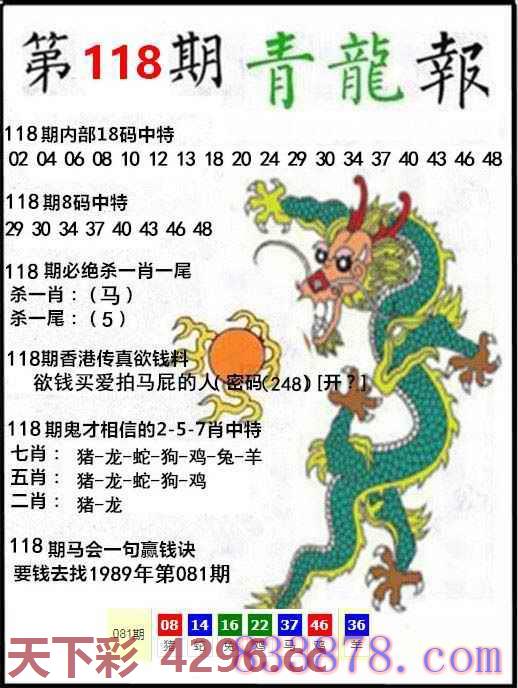 第118期青龍報
118期内部18码中特
02 04 06 08 10 12 13 18 20 24 29 30 34 37 40 43 46 48
118期8码中特
29 30 34 37 40 43 46 48
118期必绝杀一肖一尾
杀一肖：（马）
杀一尾：（5）
118期香港传真欲钱料
欲钱买爱拍马屁的人（密码(248）[开？]
118期鬼才相信的2-5-7肖中特
七肖： 猪-龙-蛇-狗-鸡-兔-羊
五肖： 猪-龙-蛇-狗-鸡
二肖： 猪-龙
118期马会一句赢钱诀
要钱去找1989年第081期
081期 08 14 16 22 37 46 36
猪 蛇 兔 鸡 马 鸡 羊
天下彩 4296.cc
838878.com